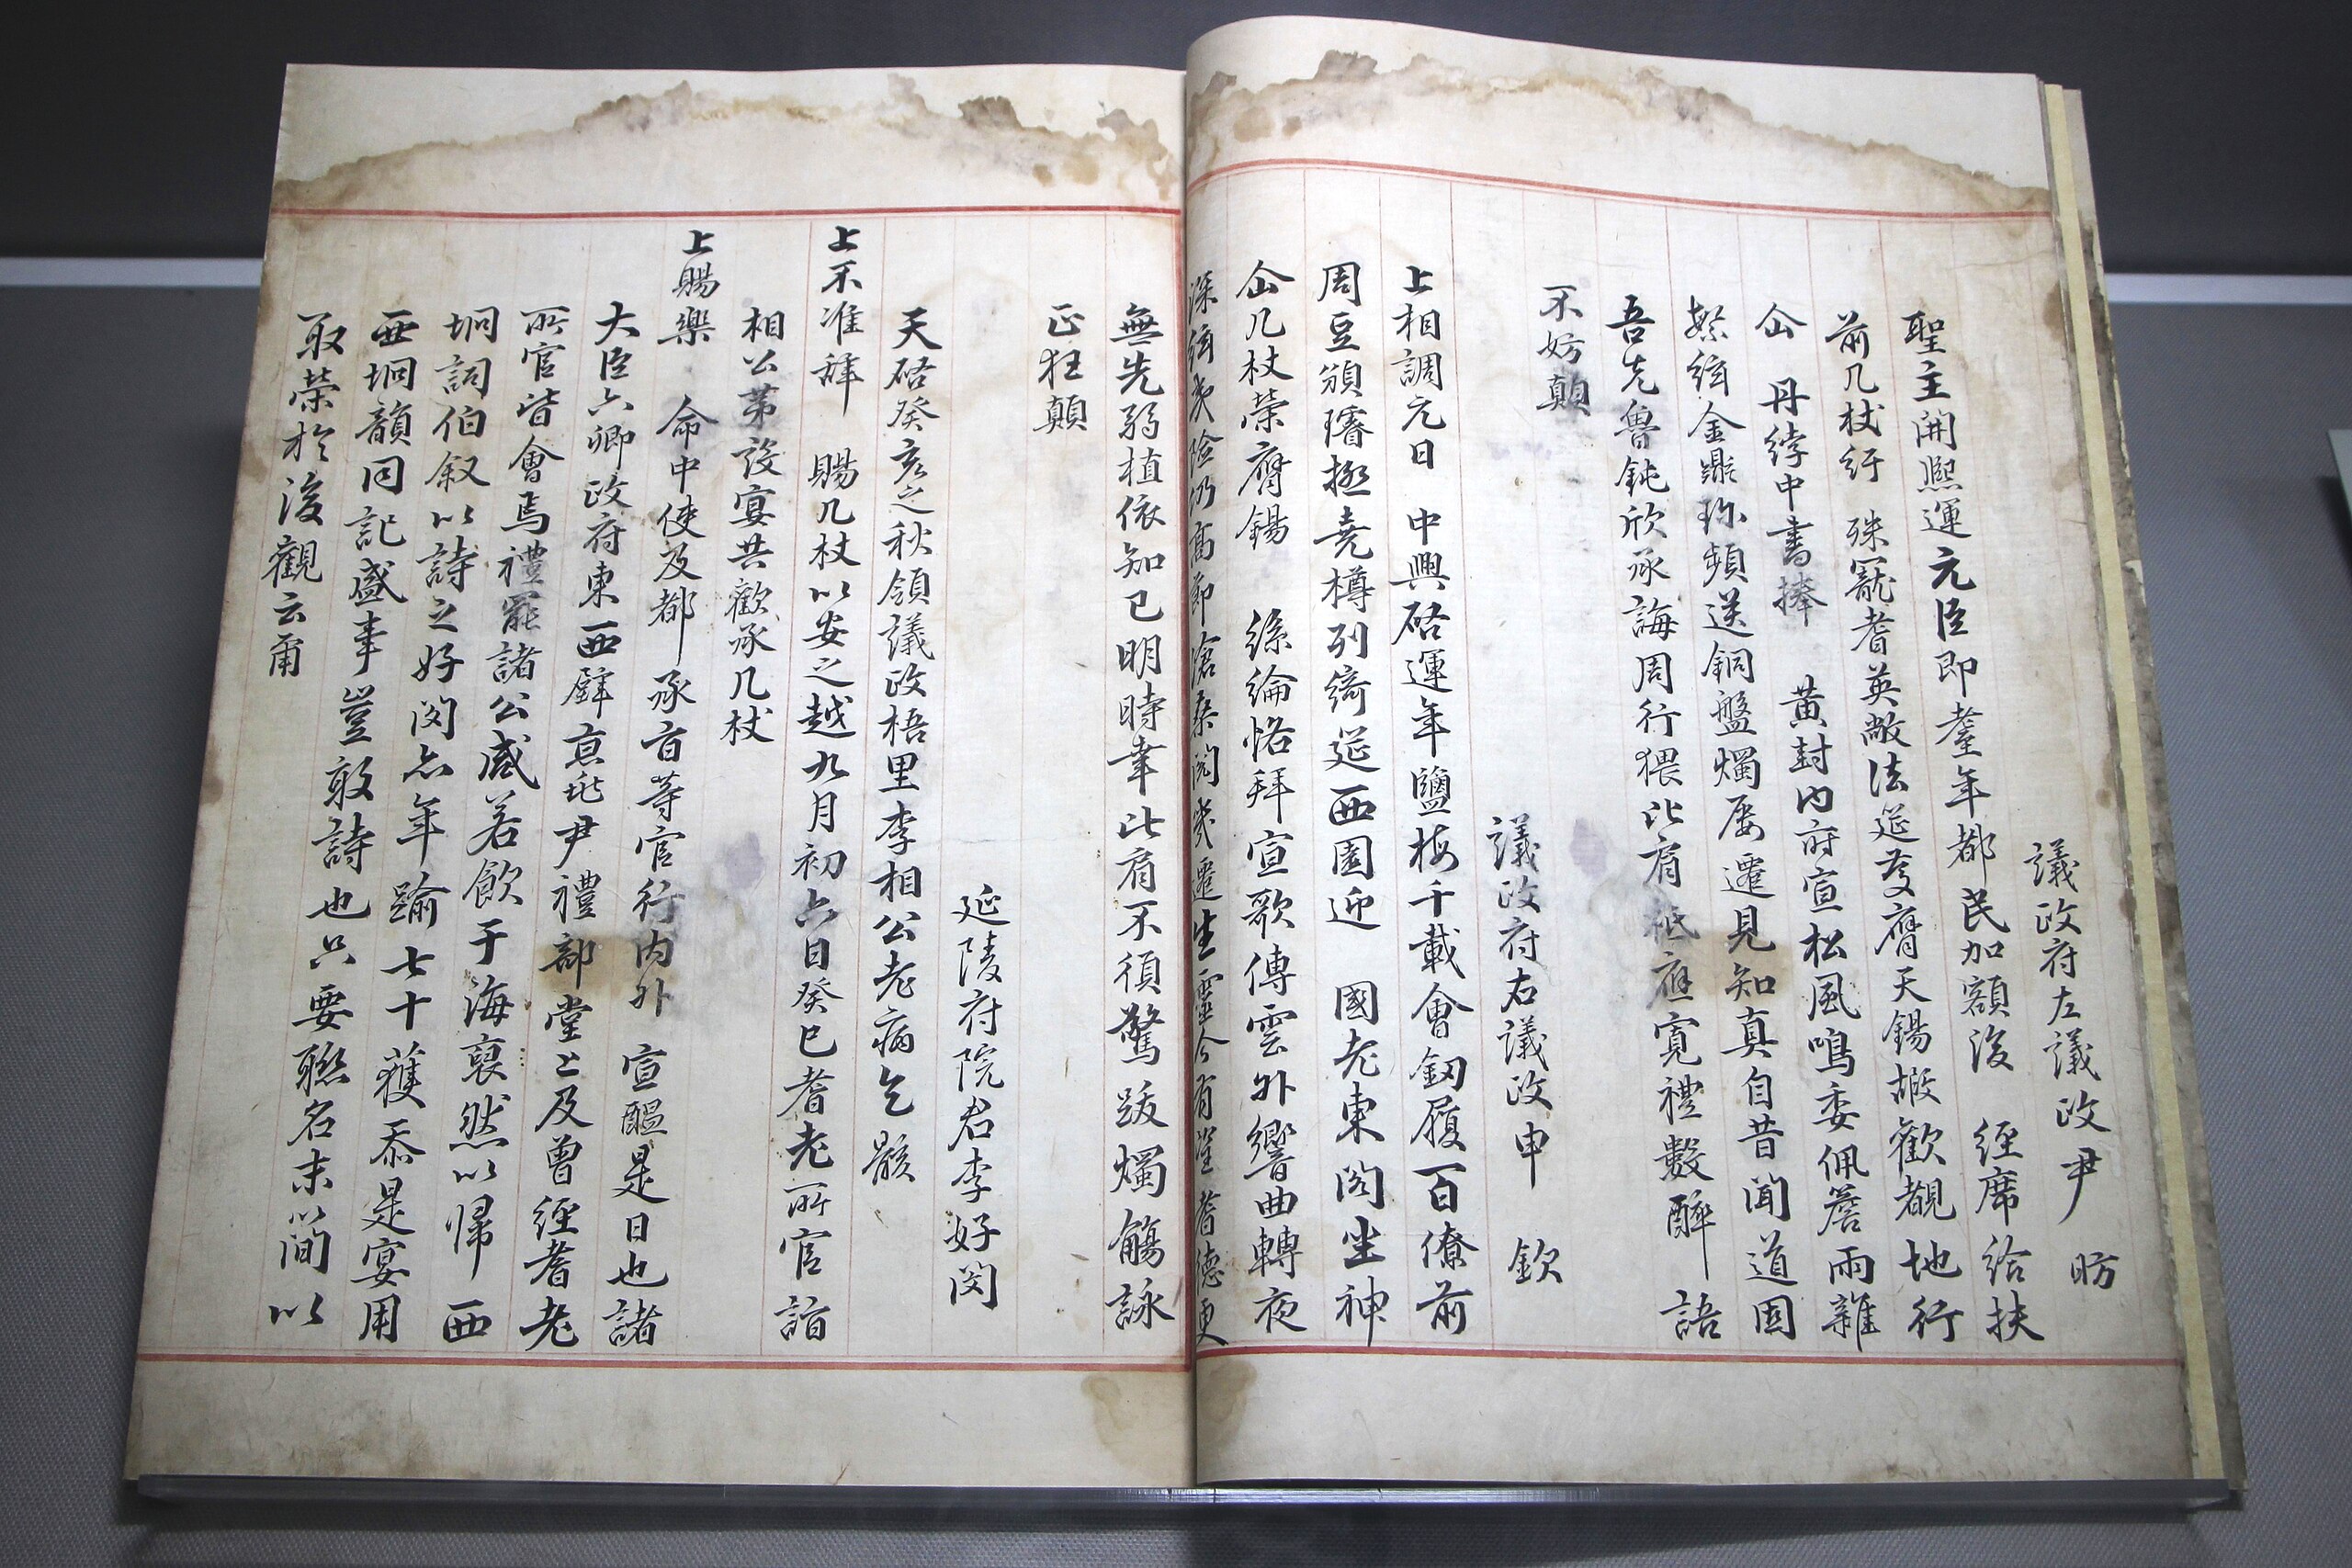 議政府左議政尹 昉
聖主開熙運元臣即耋年都民加額後 經席給扶
前几杖紆 殊寵耆英敞法筵受膺天錫嘏歡覩地行
仚 丹綍中書捧 黃封内府宣松風鳴委佩簷雨雜
繁絃金鼎珎頻送銅盤燭屡遷見知真自昔聞道固
吾先魯鈍欣承誨周行猥比肩秪應寬禮數醉語
不妨顛
議政府右議政申 欽
上相調元日 中興啓運年鹽梅千載會劒履百僚前
周豆頒璿極堯樽列綺筵西園迎 國老東閣坐神
仚几杖榮膺錫 絲綸恪拜宣歌傳雲外響曲轉夜
深絃夷險仍高節滄桑閱幾遷生靈今有望耆德更
無先弱植依知已明時幸比肩不須驚跋燭觴詠
正狂顛
延陵府院君李好閔
天啓癸亥之秋領議政梧里李相公老病乞骸
上不准辞 賜几杖以安之越九月初六日癸巳耆老所官詣
相公第設宴共歡承几杖
上賜樂 命中使及都承旨等官行内外 宣醞是日也諸
大臣六卿政府東西壁京兆尹禮部堂上及曾經耆老
所官皆會焉禮罷諸公咸若飲于海裒然以歸 西
坰詞伯叙以詩之好閔忝年踰七十獲忝是宴用
西坰韻同記盛事豈敢詩也只要聯名末簡以
取榮於後觀云爾